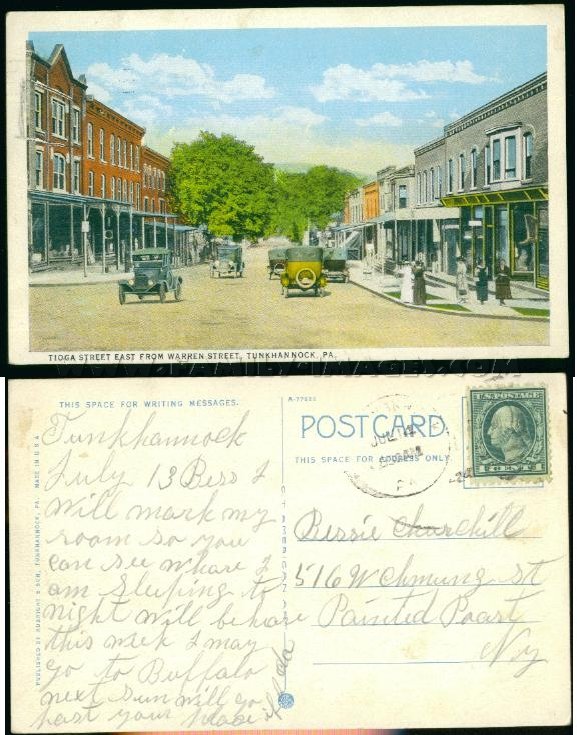 TIOGA STREET EAST FROM WARREN STREET, TUNKHANNOCK, PA.
THIS SPACE FOR WRITING MESSAGES.
Tunkhannock
July 13 Bess I
will mark my
room so you
can see whare I
am sleeping to
night will be hore
this week I may
go to Buffalo
next sun will go
past your place
PUBLISHED BY & SON, TUNKHANNOCK, PA. MADE IN U.S.A.
POSTCARD
THIS SPACE FOR ADDRESS ONLY.
JUL
PA
U.S. POSTAGE
1 CENT 1
Bessie Churchill
516 W Chmung St
Painted Poast
Ny